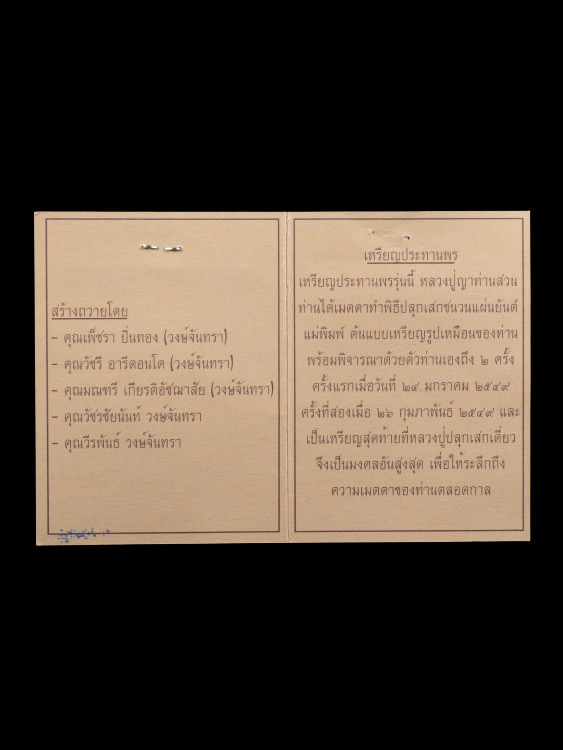 สร้างถวายโดย
- คุณเพ็ชรา ปิ่นทอง (วงษ์จันทรา)
- คุณวัชรี อารีดอนโด (วงษ์จันทรา)
- คุณมณฑรี เกียรติอัชฌาสัย (วงษ์จันทรา)
- คุณวัชรชัยนันท์ วงษ์จันทรา
- คุณวีรพันธ์ วงษ์จันทรา
เหรียญประทานพร
เหรียญประทานพรรุ่นนี้ หลวงปู่ญาท่านสวน
ท่านได้เมตตาทำพิธีปลุกเสกชนวนแผ่นยันต์
แม่พิมพ์ ต้นแบบเหรียญรูปเหมือนของท่าน
พร้อมพิจารณาด้วยตัวท่านเองถึง ๒ ครั้ง
ครั้งแรกเมื่อวันที่ ๒๔ มกราคม ๒๕๔๙
ครั้งที่สองเมื่อ ๒๖ กุมภาพันธ์ ๒๕๔๙ และ
เป็นเหรียญสุดท้ายที่หลวงปู่ปลุกเสกเดี่ยว
จึงเป็นมงคลอันสูงสุด เพื่อให้ระลึกถึง
ความเมตตาของท่านตลอดกาล